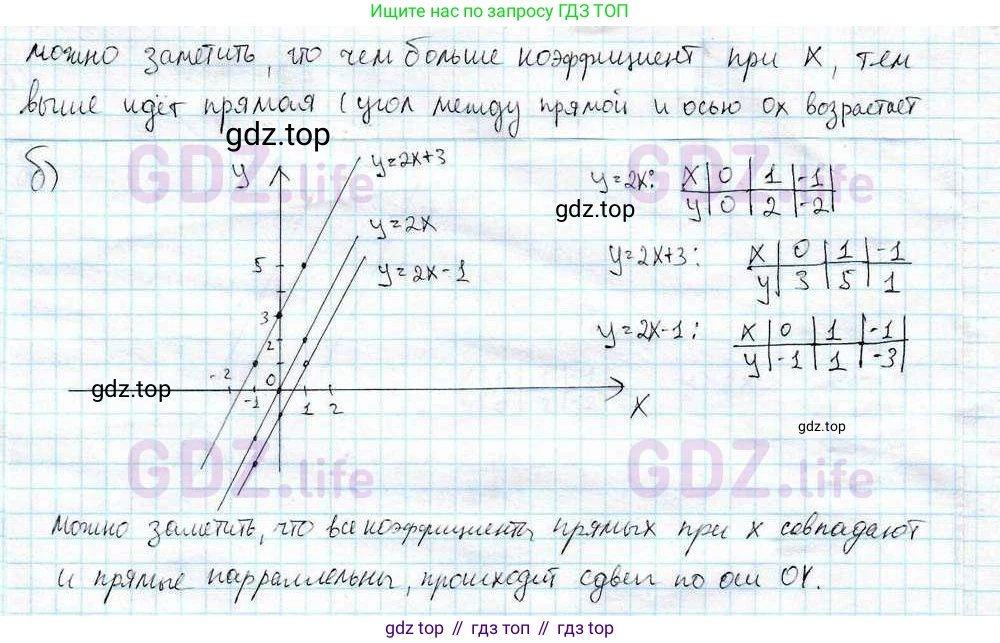 Ищите нас по запросу ГДЗ ТОП
можно заметить, что чем больше коэффициент при X, тем
выше идёт прямая (угол между прямой и осью OX возрастает
gdz.top
GDZ.life GDZ.life
б)
y
y=2x+3
y=2x
y=2x-1
5
3
2
-2 -1 0 1 2
X
gdz.top
y=2x: X | 0 | 1 | -1
y | 0 | 2 | -2
gdz.top
y=2x+3: X | 0 | 1 | -1
y | 3 | 5 | 1
y=2x-1: X | 0 | 1 | -1 |
y | -1 | 1 | -3 |
gdz.top
GDZ.life GDZ.life
можно заметить, что все коэффициенты прямых при x совпадают
и прямые парраллельны, происходит сдвиг по оси OY.
gdz.top // gdz.top // gdz.top